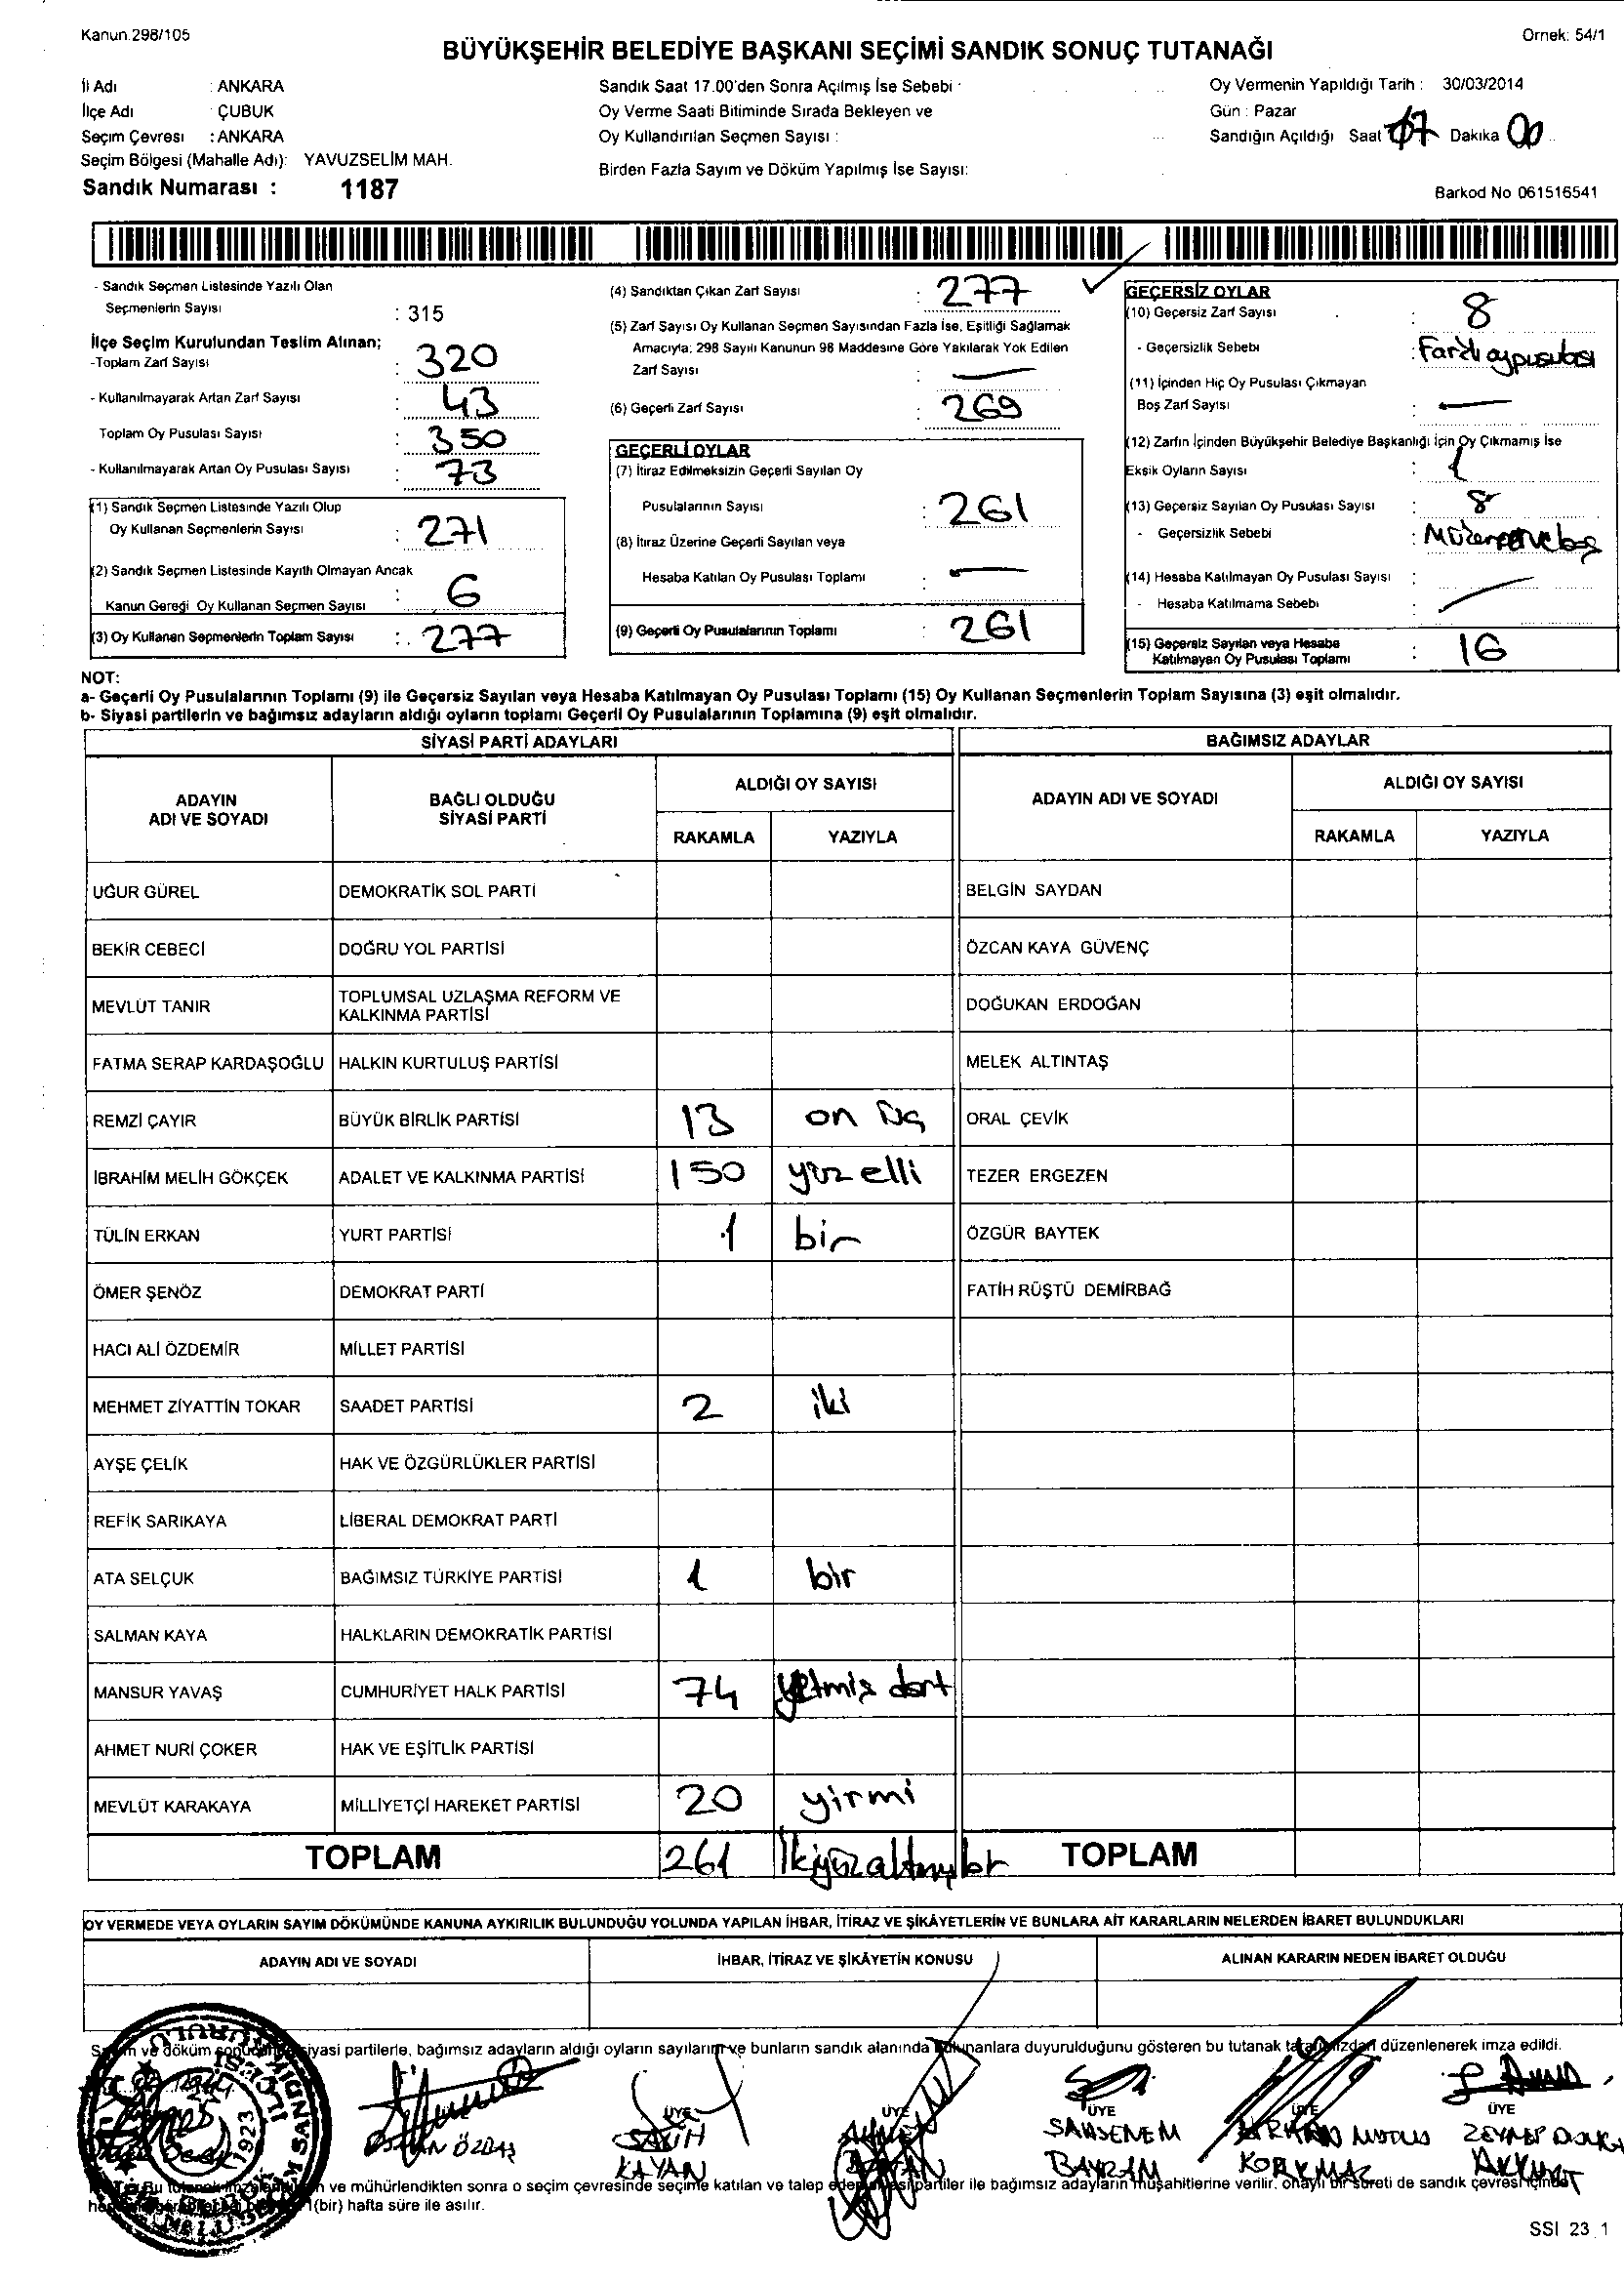 Kanun.298/105
Ornek: 54/1
BÜYÜKŞEHİR BELEDİYE BAŞKANI SEÇİMİ SANDIK SONUÇ TUTANAĞI
İl Adı : ANKARA
İlçe Adı : ÇUBUK
Seçim Çevresi : ANKARA
Seçim Bölgesi (Mahalle Adı): YAVUZSELİM MAH.
Sandık Numarası : 1187
Sandık Saat 17.00'den Sonra Açılmış İse Sebebi :
Oy Verme Saati Bitiminde Sırada Bekleyen ve
Oy Kullandırılan Seçmen Sayısı :
Birden Fazla Sayım ve Döküm Yapılmış İse Sayısı:
Oy Vermenin Yapıldığı Tarih : 30/03/2014
Gün : Pazar
Sandığın Açıldığı Saat 17 Dakika 00
Barkod No 061516541
- Sandık Seçmen Listesinde Yazılı Olan
Seçmenlerin Sayısı : 315
İlçe Seçim Kurulundan Teslim Alınan;
-Toplam Zarf Sayısı : 320
- Kullanılmayarak Artan Zarf Sayısı : 43
Toplam Oy Pusulası Sayısı : 350
- Kullanılmayarak Artan Oy Pusulası Sayısı : 73
(1) Sandık Seçmen Listesinde Yazılı Olup
Oy Kullanan Seçmenlerin Sayısı : 271
(2) Sandık Seçmen Listesinde Kayıtlı Olmayan Ancak
Kanun Gereği Oy Kullanan Seçmen Sayısı : 6
(3) Oy Kullanan Seçmenlerin Toplam Sayısı : 277
(4) Sandıktan Çıkan Zarf Sayısı : 277
(5) Zarf Sayısı Oy Kullanan Seçmen Sayısından Fazla İse, Eşitliği Sağlamak
Amacıyla; 298 Sayılı Kanunun 98 Maddesine Göre Yakılarak Yok Edilen
Zarf Sayısı : —
(6) Geçerli Zarf Sayısı : 269
GEÇERLİ OYLAR
(7) İtiraz Edilmeksizin Geçerli Sayılan Oy
Pusulalarının Sayısı : 261
(8) İtiraz Üzerine Geçerli Sayılan veya
Hesaba Katılan Oy Pusulası Toplamı : —
(9) Geçerli Oy Pusulalarının Toplamı : 261
GEÇERSİZ OYLAR
(10) Geçersiz Zarf Sayısı : 8
- Geçersizlik Sebebi : Farklı oy pusulası
(11) İçinden Hiç Oy Pusulası Çıkmayan
Boş Zarf Sayısı : —
(12) Zarfın İçinden Büyükşehir Belediye Başkanlığı İçin Oy Çıkmamış İse
Eksik Oyların Sayısı : 1
(13) Geçersiz Sayılan Oy Pusulası Sayısı : 8
- Geçersizlik Sebebi :
(14) Hesaba Katılmayan Oy Pusulası Sayısı :
- Hesaba Katılmama Sebebi :
(15) Geçersiz Sayılan veya Hesaba
Katılmayan Oy Pusulası Toplamı : 16
NOT:
a- Geçerli Oy Pusulalarının Toplamı (9) ile Geçersiz Sayılan veya Hesaba Katılmayan Oy Pusulası Toplamı (15) Oy Kullanan Seçmenlerin Toplam Sayısına (3) eşit olmalıdır.
b- Siyasi partilerin ve bağımsız adayların aldığı oyların toplamı Geçerli Oy Pusulalarının Toplamına (9) eşit olmalıdır.
SİYASİ PARTİ ADAYLARI BAĞIMSIZ ADAYLAR
ADAYIN ADI VE SOYADI BAĞLI OLDUĞU SİYASİ PARTİ ALDIĞI OY SAYISI ADAYIN ADI VE SOYADI ALDIĞI OY SAYISI
RAKAMLA YAZIYLA RAKAMLA YAZIYLA
UĞUR GÜREL DEMOKRATİK SOL PARTİ BELGİN SAYDAN
BEKİR CEBECİ DOĞRU YOL PARTİSİ ÖZCAN KAYA GÜVENÇ
MEVLÜT TANIR TOPLUMSAL UZLAŞMA REFORM VE KALKINMA PARTİSİ DOĞUKAN ERDOĞAN
FATMA SERAP KARDAŞOĞLU HALKIN KURTULUŞ PARTİSİ MELEK ALTINTAŞ
REMZİ ÇAYIR BÜYÜK BİRLİK PARTİSİ 13 on üç ORAL ÇEVİK
İBRAHİM MELİH GÖKÇEK ADALET VE KALKINMA PARTİSİ 150 yüz elli TEZER ERGEZEN
TÜLİN ERKAN YURT PARTİSİ 1 bir ÖZGÜR BAYTEK
ÖMER ŞENÖZ DEMOKRAT PARTİ FATİH RÜŞTÜ DEMİRBAĞ
HACI ALİ ÖZDEMİR MİLLET PARTİSİ
MEHMET ZİYATTİN TOKAR SAADET PARTİSİ 2 iki
AYŞE ÇELİK HAK VE ÖZGÜRLÜKLER PARTİSİ
REFİK SARIKAYA LİBERAL DEMOKRAT PARTİ
ATA SELÇUK BAĞIMSIZ TÜRKİYE PARTİSİ 1 bir
SALMAN KAYA HALKLARIN DEMOKRATİK PARTİSİ
MANSUR YAVAŞ CUMHURİYET HALK PARTİSİ 74 yetmiş dört
AHMET NURİ ÇOKER HAK VE EŞİTLİK PARTİSİ
MEVLÜT KARAKAYA MİLLİYETÇİ HAREKET PARTİSİ 20 yirmi
TOPLAM 261 İkiyüzaltmışbir TOPLAM
OY VERMEDE VEYA OYLARIN SAYIM DÖKÜMÜNDE KANUNA AYKIRILIK BULUNDUĞU YOLUNDA YAPILAN İHBAR, İTİRAZ VE ŞİKÂYETLERİN VE BUNLARA AİT KARARLARIN NELERDEN İBARET BULUNDUKLARI
ADAYIN ADI VE SOYADI İHBAR, İTİRAZ VE ŞİKÂYETİN KONUSU ALINAN KARARIN NEDEN İBARET OLDUĞU
Sayım ve döküm sonucunda siyasi partilerle, bağımsız adayların aldığı oyların sayılarını ve bunların sandık alanında bulunanlara duyurulduğunu gösteren bu tutanak tarafımızdan düzenlenerek imza edildi.
ÜYE ÜYE ÜYE ÜYE ÜYE
OSMAN ÖZDAŞ SALİH KAYAN ŞAHSENEM BAYRAM KORKMAZ ZEYNEP AKKURT
1923
ve mühürlendikten sonra o seçim çevresinde seçime katılan ve talep eden siyasi partiler ile bağımsız adayların müşahitlerine verilir. onaylı bir sureti de sandık çevresi içinde
1(bir) hafta süre ile asılır.
SSI 23 1